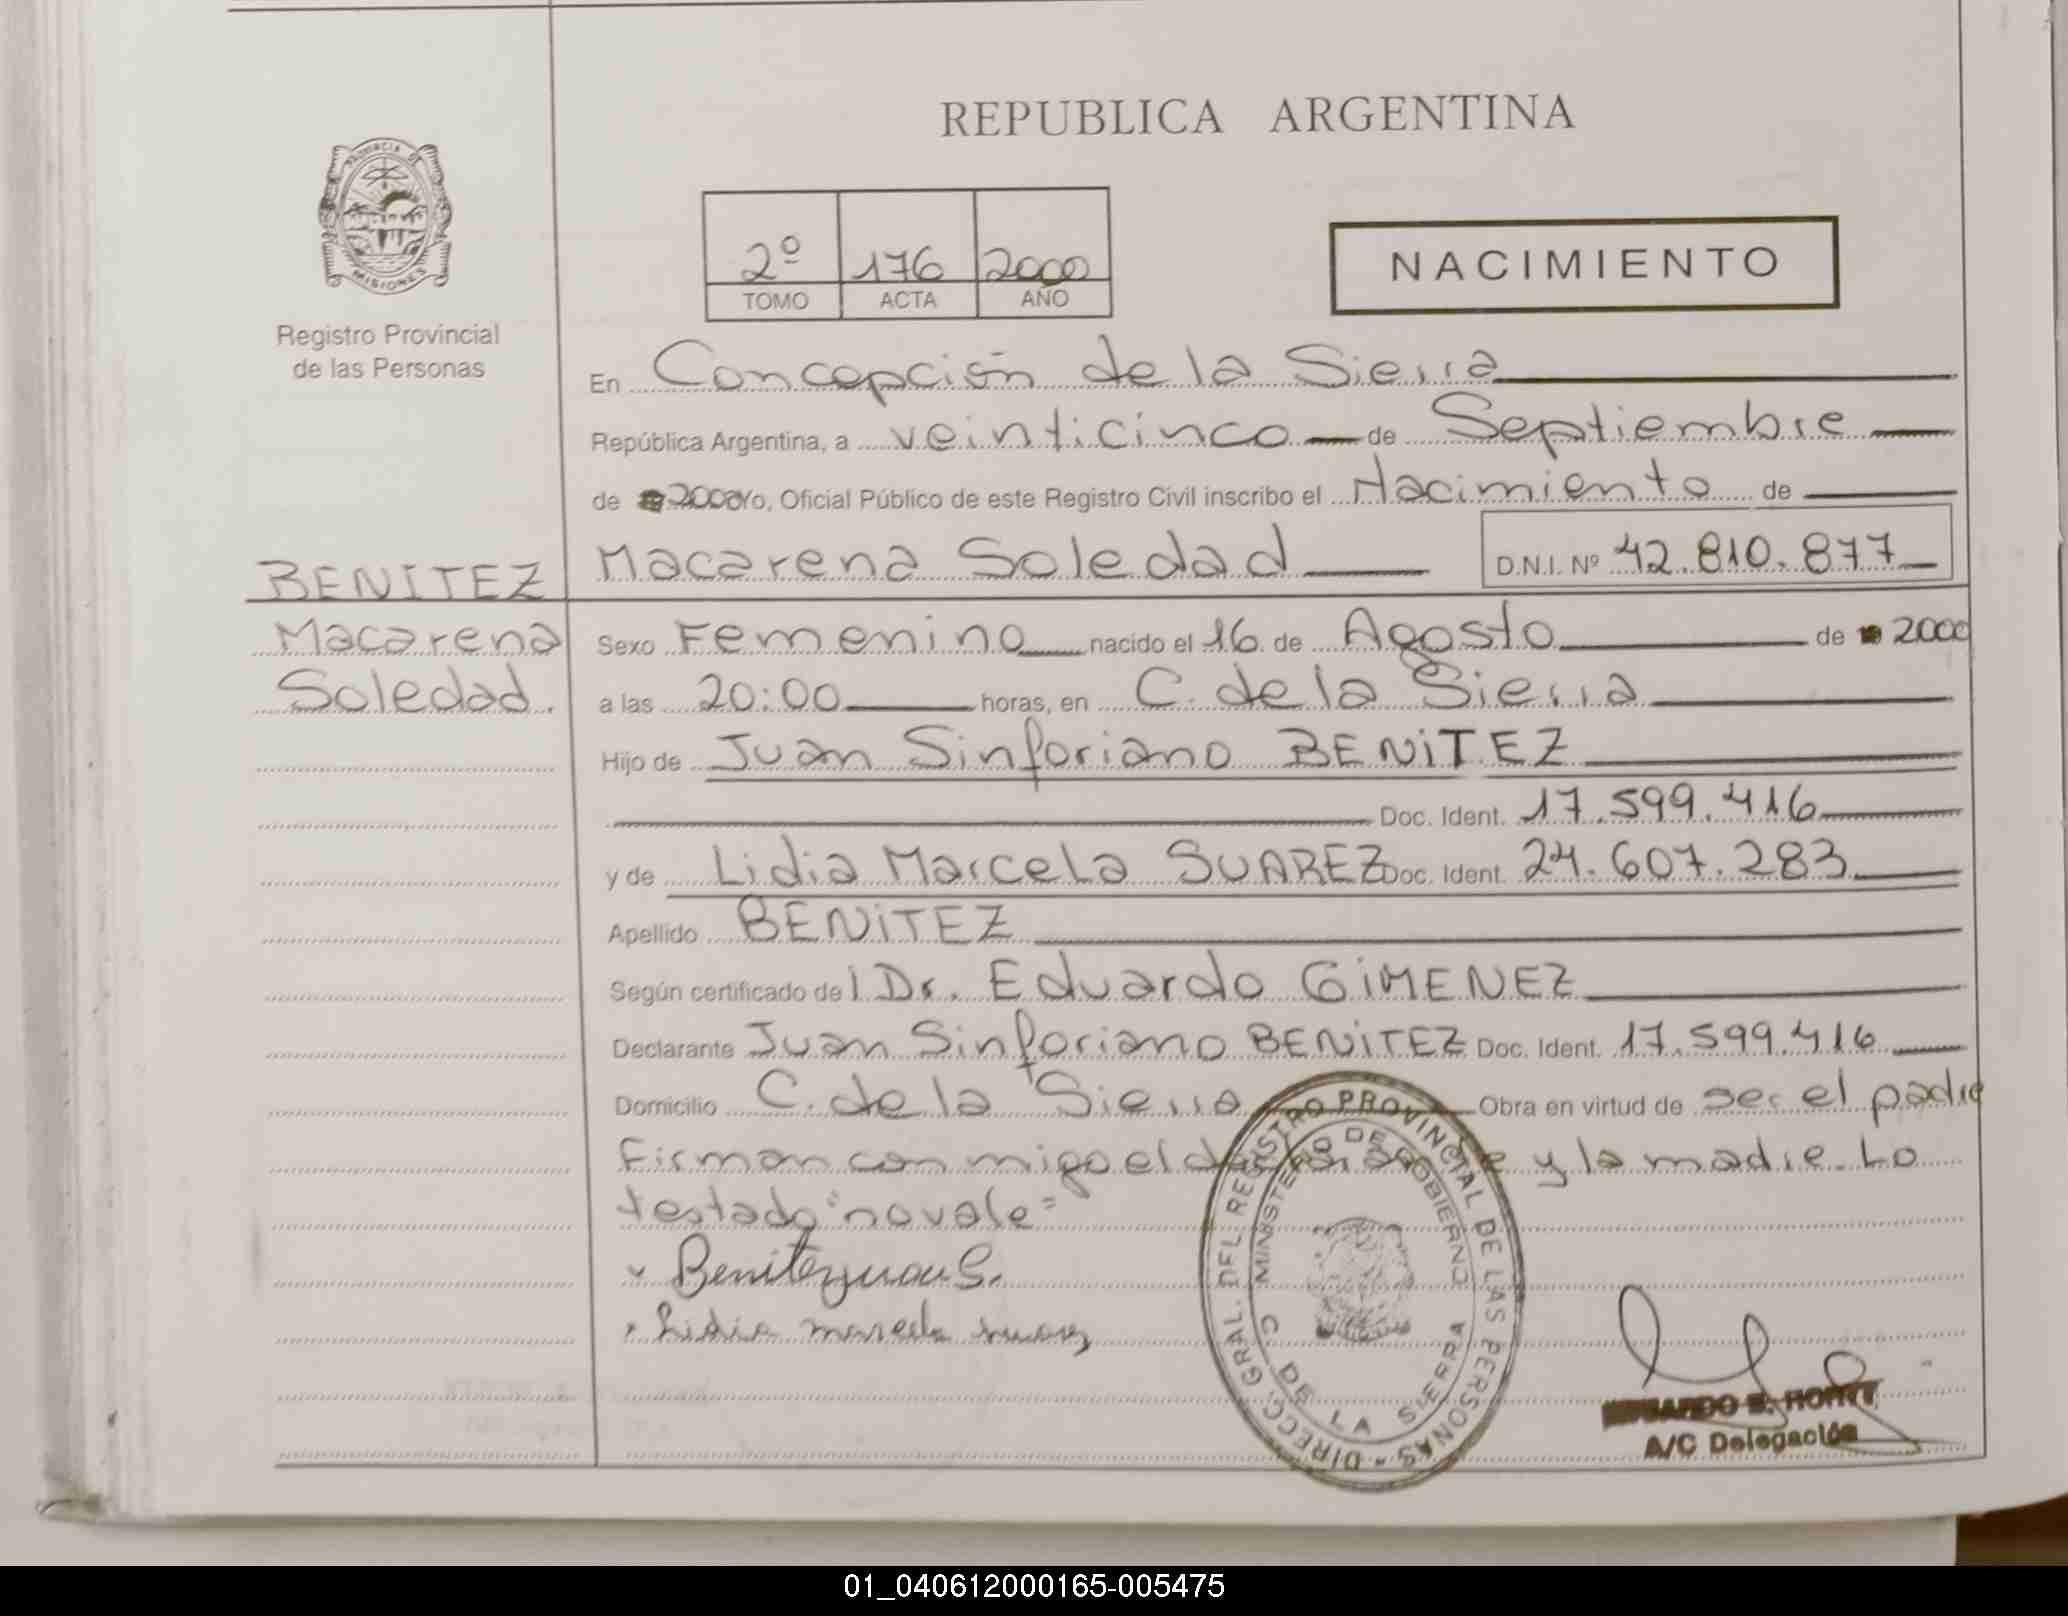 REPUBLICA ARGENTINA
PROVINCIA DE MISIONES
Registro Provincial
de las Personas
2º 176 2000
TOMO ACTA AÑO
NACIMIENTO
En Concepción de la Sierra
República Argentina, a veinticinco de Septiembre
de 2000 Yo, Oficial Público de este Registro Civil inscribo el Nacimiento de
Macarena Soledad D.N.I. Nº 42.810.877
BENITEZ
Macarena
Soledad.
Sexo Femenino nacido el 16 de Agosto de 2000
a las 20:00 horas, en C. de la Sierra
Hijo de Juan Sinforiano BENITEZ
Doc. Ident. 17.599.416
y de Lidia Marcela SUAREZ Doc. Ident. 24.607.283
Apellido BENITEZ
Según certificado del Dr. Eduardo GIMENEZ
Declarante Juan Sinforiano BENITEZ Doc. Ident. 17.599.416
Domicilio C. de la Sierra Obra en virtud de ser el padre
Firman con migo el declarante y la madre. Lo
testado "no vale"
Benitez Juan S.
Lidia marcela suarez
DIRECC. GRAL. DEL REGISTRO PROVINCIAL DE LAS PERSONAS -
MINISTERIO DE GOBIERNO
C. DE LA SIERRA
A/C Delegación
01_040612000165-005475